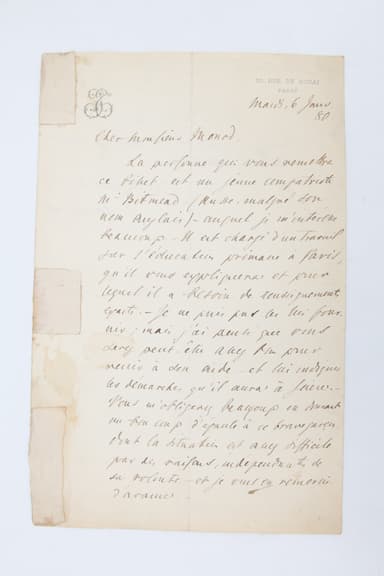 50, RUE DE DOUAI
PARIS
Mardi, 6 Janv
80
Cher Monsieur Monod.
La personne qui vous remettra
ce billet est un jeune compatriote
Mr (Russe, malgré son
nom Anglais) – auquel je m'intéresse
beaucoup – Il est chargé d'un travail
sur l'éducation primaire à Paris,
qu'il vous expliquera et pour
lequel il a besoin de renseignements
– Je ne puis pas les lui four-
nir; mais j'ai pensé que vous
serez peut-être assez bon pour
venir à son aide et lui indiquer
les démarches qu'il aura à faire. –
Vous m'obligerez beaucoup en donnant
un coup d'épaule à ce brave garçon
dont la situation est assez difficile
par des raisons, indépendantes de
sa volonté – et je vous en remercie
d'avance